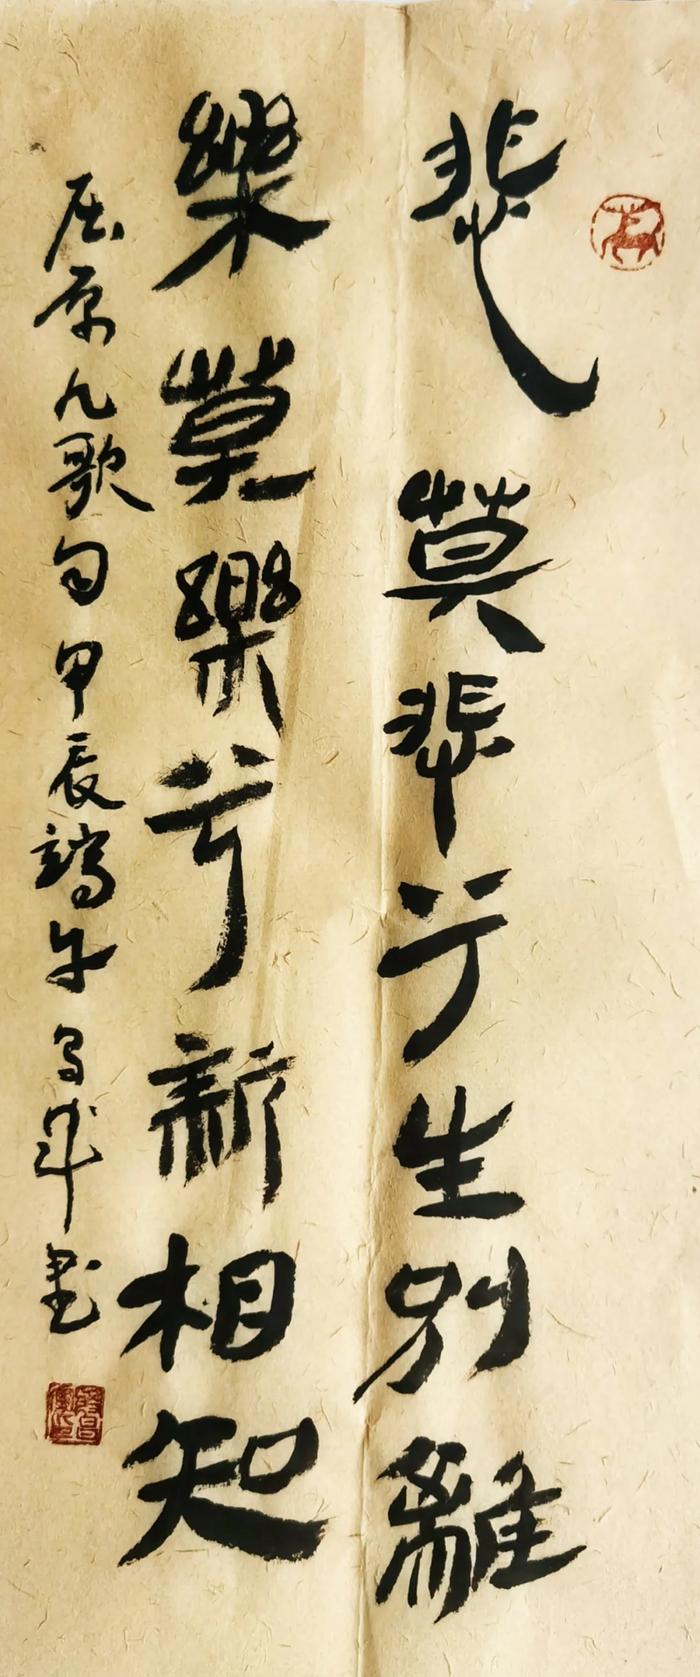 悲莫悲兮生别離
樂莫樂兮新相知
屈原九歌句甲辰端午书